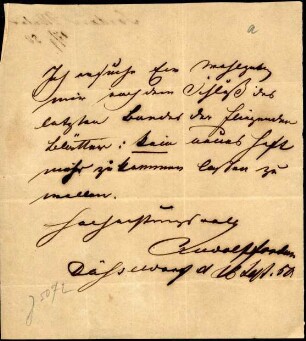 a
Ich ersuche Ein
mir nach dem Schluß des
letzten Bandes der fliegenden
Blätter: kein neues Heft
mehr zukommen lassen zu
wollen.
Hochachtungsvoll
Rudolf
d 16 Sept. 50.